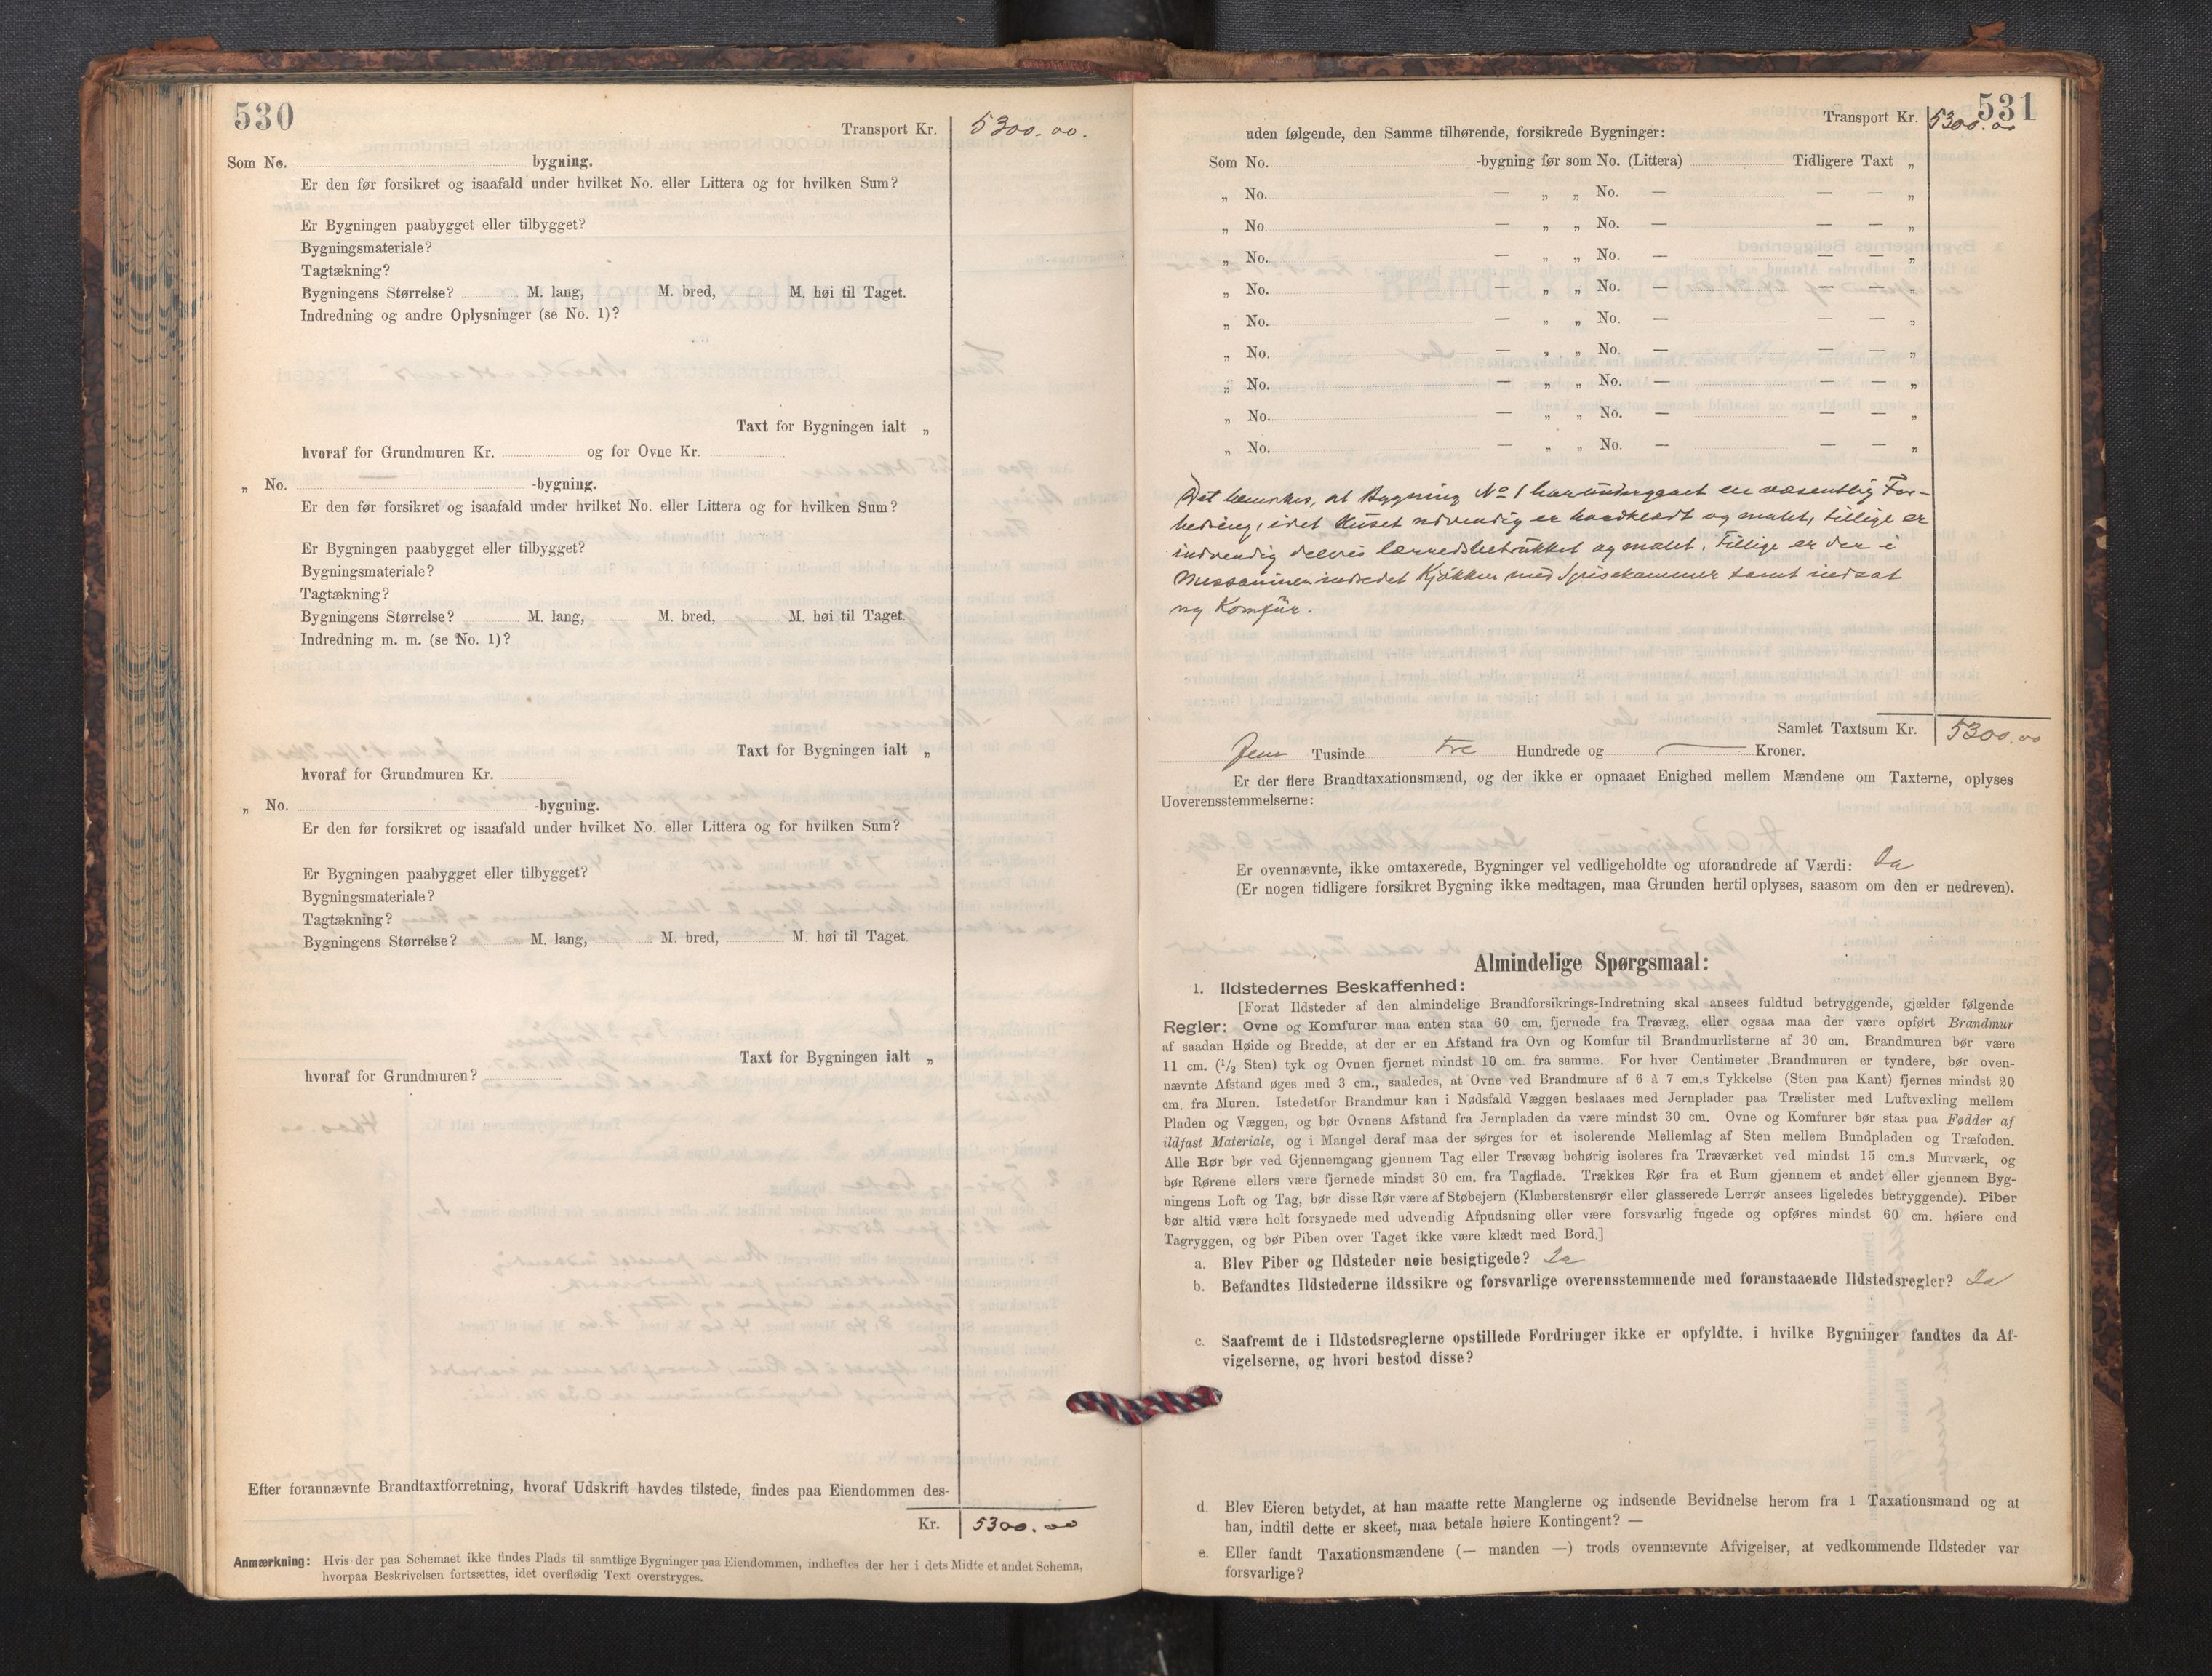 530
Transport Kr. 5300.00.
Som No. bygning.
Er den før forsikret og isaafald under hvilket No. eller Littera og for hvilken Sum?
Er Bygningen paabygget eller tilbygget?
Bygningsmateriale?
Tagtækning?
Bygningens Størrelse? M. lang, M. bred, M. høi til Taget.
Indredning og andre Oplysninger (se No. 1)?
Taxt for Bygningen ialt „
hvoraf for Grundmuren Kr. og for Ovne Kr.
„ No. -bygning.
Er den før forsikret og isaafald under hvilket No. eller Littera og for hvilken Sum?
Er Bygningen paabygget eller tilbygget?
Bygningsmateriale?
Tagtækning?
Bygningens Størrelse? M. lang, M. bred, M. høi til Taget.
Indredning m. m. (se No. 1)?
Taxt for Bygningen ialt „
hvoraf for Grundmuren Kr.
„ No. -bygning.
Er den før forsikret og isaafald under hvilket No. eller Littera og for hvilken Sum?
Er Bygningen paabygget eller tilbygget?
Bygningsmateriale?
Tagtækning?
Bygningens Størrelse? M. lang, M. bred, M. høi til Taget.
Taxt for Bygningen ialt „
hvoraf for Grundmuren?
Efter forannævnte Brandtaxtforretning, hvoraf Udskrift havdes tilstede, findes paa Eiendommen des-
Kr. 5300.00
Anmærkning: Hvis der paa Schemaet ikke findes Plads til samtlige Bygninger paa Eiendommen, indheftes der her i dets Midte et andet Schema,
hvorpaa Beskrivelsen fortsættes, idet overflødig Text overstryges.
531
Transport Kr. 5300.00
uden følgende, den Samme tilhørende, forsikrede Bygninger:
Som No. -bygning før som No. (Littera) Tidligere Taxt „
„ No. — „ „ No. — — — „
„ No. — „ „ No. — — — „
„ No. — „ „ No. — — — „
„ No. — „ „ No. — — — „
„ No. — „ „ No. — — — „
„ No. — „ „ No. — — — „
„ No. — „ „ No. — — — „
„ No. — „ „ No. — — — „
„ No. — „ „ No. — — — „
Det bemerkes, at Bygning No 1 har undergaaet en væsentlig For-
bedring, idet Huset udvendig er bordklædt og malet, tillige er
indvendig delvis lærredsbetrukket og malet. Tillige er der i
Messaninen indredet Kjøkken med Spisekammer samt indsat
ny Komfür.
Samlet Taxtsum Kr. 5300.00
Fem Tusinde tre Hundrede og — Kroner.
Er der flere Brandtaxationsmænd, og der ikke er opnaaet Enighed mellem Mændene om Taxterne, oplyses
Uoverensstemmelserne:
Er ovennævnte, ikke omtaxerede, Bygninger vel vedligeholdte og uforandrede af Værdi: Ja
(Er nogen tidligere forsikret Bygning ikke medtagen, maa Grunden hertil oplyses, saasom om den er nedreven).
Almindelige Spørgsmaal:
1. Ildstedernes Beskaffenhed:
[Forat Ildsteder af den almindelige Brandforsikrings-Indretning skal ansees fuldtud betryggende, gjælder følgende
Regler: Ovne og Komfurer maa enten staa 60 cm. fjernede fra Trævæg, eller ogsaa maa der være opført Brandmur
af saadan Høide og Bredde, at der er en Afstand fra Ovn og Komfur til Brandmurlisterne af 30 cm. Brandmuren bør være
11 cm. (1/2 Sten) tyk og Ovnen fjernet mindst 10 cm. fra samme. For hver Centimeter Brandmuren er tyndere, bør oven-
nævnte Afstand øges med 3 cm., saaledes, at Ovne ved Brandmure af 6 à 7 cm.s Tykkelse (Sten paa Kant) fjernes mindst 20
cm. fra Muren. Istedetfor Brandmur kan i Nødsfald Væggen beslaaes med Jernplader paa Trælister med Luftvexling mellem
Pladen og Væggen, og bør Ovnens Afstand fra Jernpladen da være mindst 30 cm. Ovne og Komfurer bør staa paa Fødder af
ildfast Materiale, og i Mangel deraf maa der sørges for et isolerende Mellemlag af Sten mellem Bundpladen og Træfoden.
Alle Rør bør ved Gjennemgang gjennem Tag eller Trævæg behørig isoleres fra Træværket ved mindst 15 cm.s Murværk, og
bør Rørene ellers være fjernede mindst 30 cm. fra Tagflade. Trækkes Rør fra et Rum gjennem et andet eller gjennem Byg-
ningens Loft og Tag, bør disse Rør være af Støbejern (Klæberstensrør eller glasserede Lerrør ansees ligeledes betryggende). Piber
bør altid være helt forsynede med udvendig Afpudsning eller være forsvarlig fugede og opføres mindst 60 cm. høiere end
Tagryggen, og bør Piben over Taget ikke være klædt med Bord.]
a. Blev Piber og Ildsteder nøie besigtigede? Ja
b. Befandtes Ildstederne ildssikre og forsvarlige overensstemmende med foranstaaende Ildstedsregler? Ja
c. Saafremt de i Ildstedsreglerne opstillede Fordringer ikke er opfyldte, i hvilke Bygninger fandtes da Af-
vigelserne, og hvori bestod disse?
d. Blev Eieren betydet, at han maatte rette Manglerne og indsende Bevidnelse herom fra 1 Taxationsmand og at
han, indtil dette er skeet, maa betale høiere Kontingent? —
e. Eller fandt Taxationsmændene (— manden —) trods ovennævnte Afvigelser, at vedkommende Ildsteder var
forsvarlige?